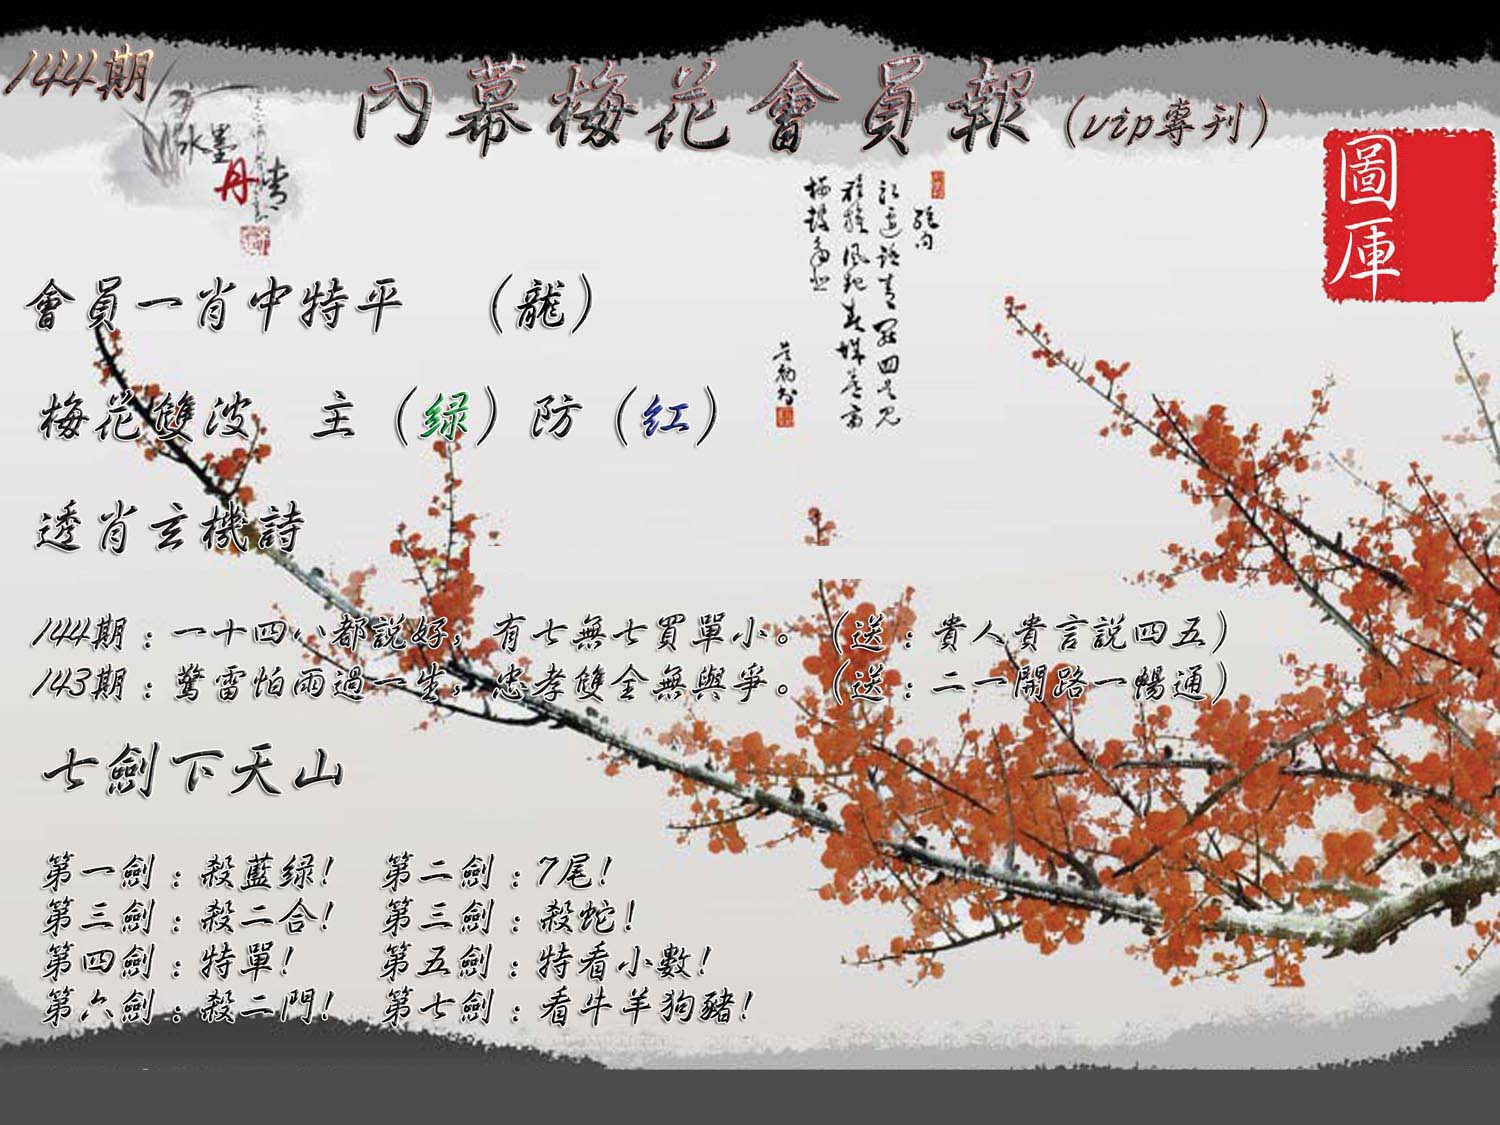 144期
內幕梅花會員報(vip專刊)
水墨
丹青
圖庫
會員一肖中特平 (龍)
梅花雙波 主(绿)防(红)
透肖玄機詩
144期:一十四八都説好,有七無七買單小。(送:貴人貴言説四五)
143期:驚雷怕雨過一生,忠孝雙全無與爭。(送:二一開路一暢通)
七劍下天山
第一劍:殺藍绿! 第二劍:7尾!
第三劍:殺二合! 第三劍:殺蛇!
第四劍:特單! 第五劍:特看小數!
第六劍:殺二門! 第七劍:看牛羊狗豬!